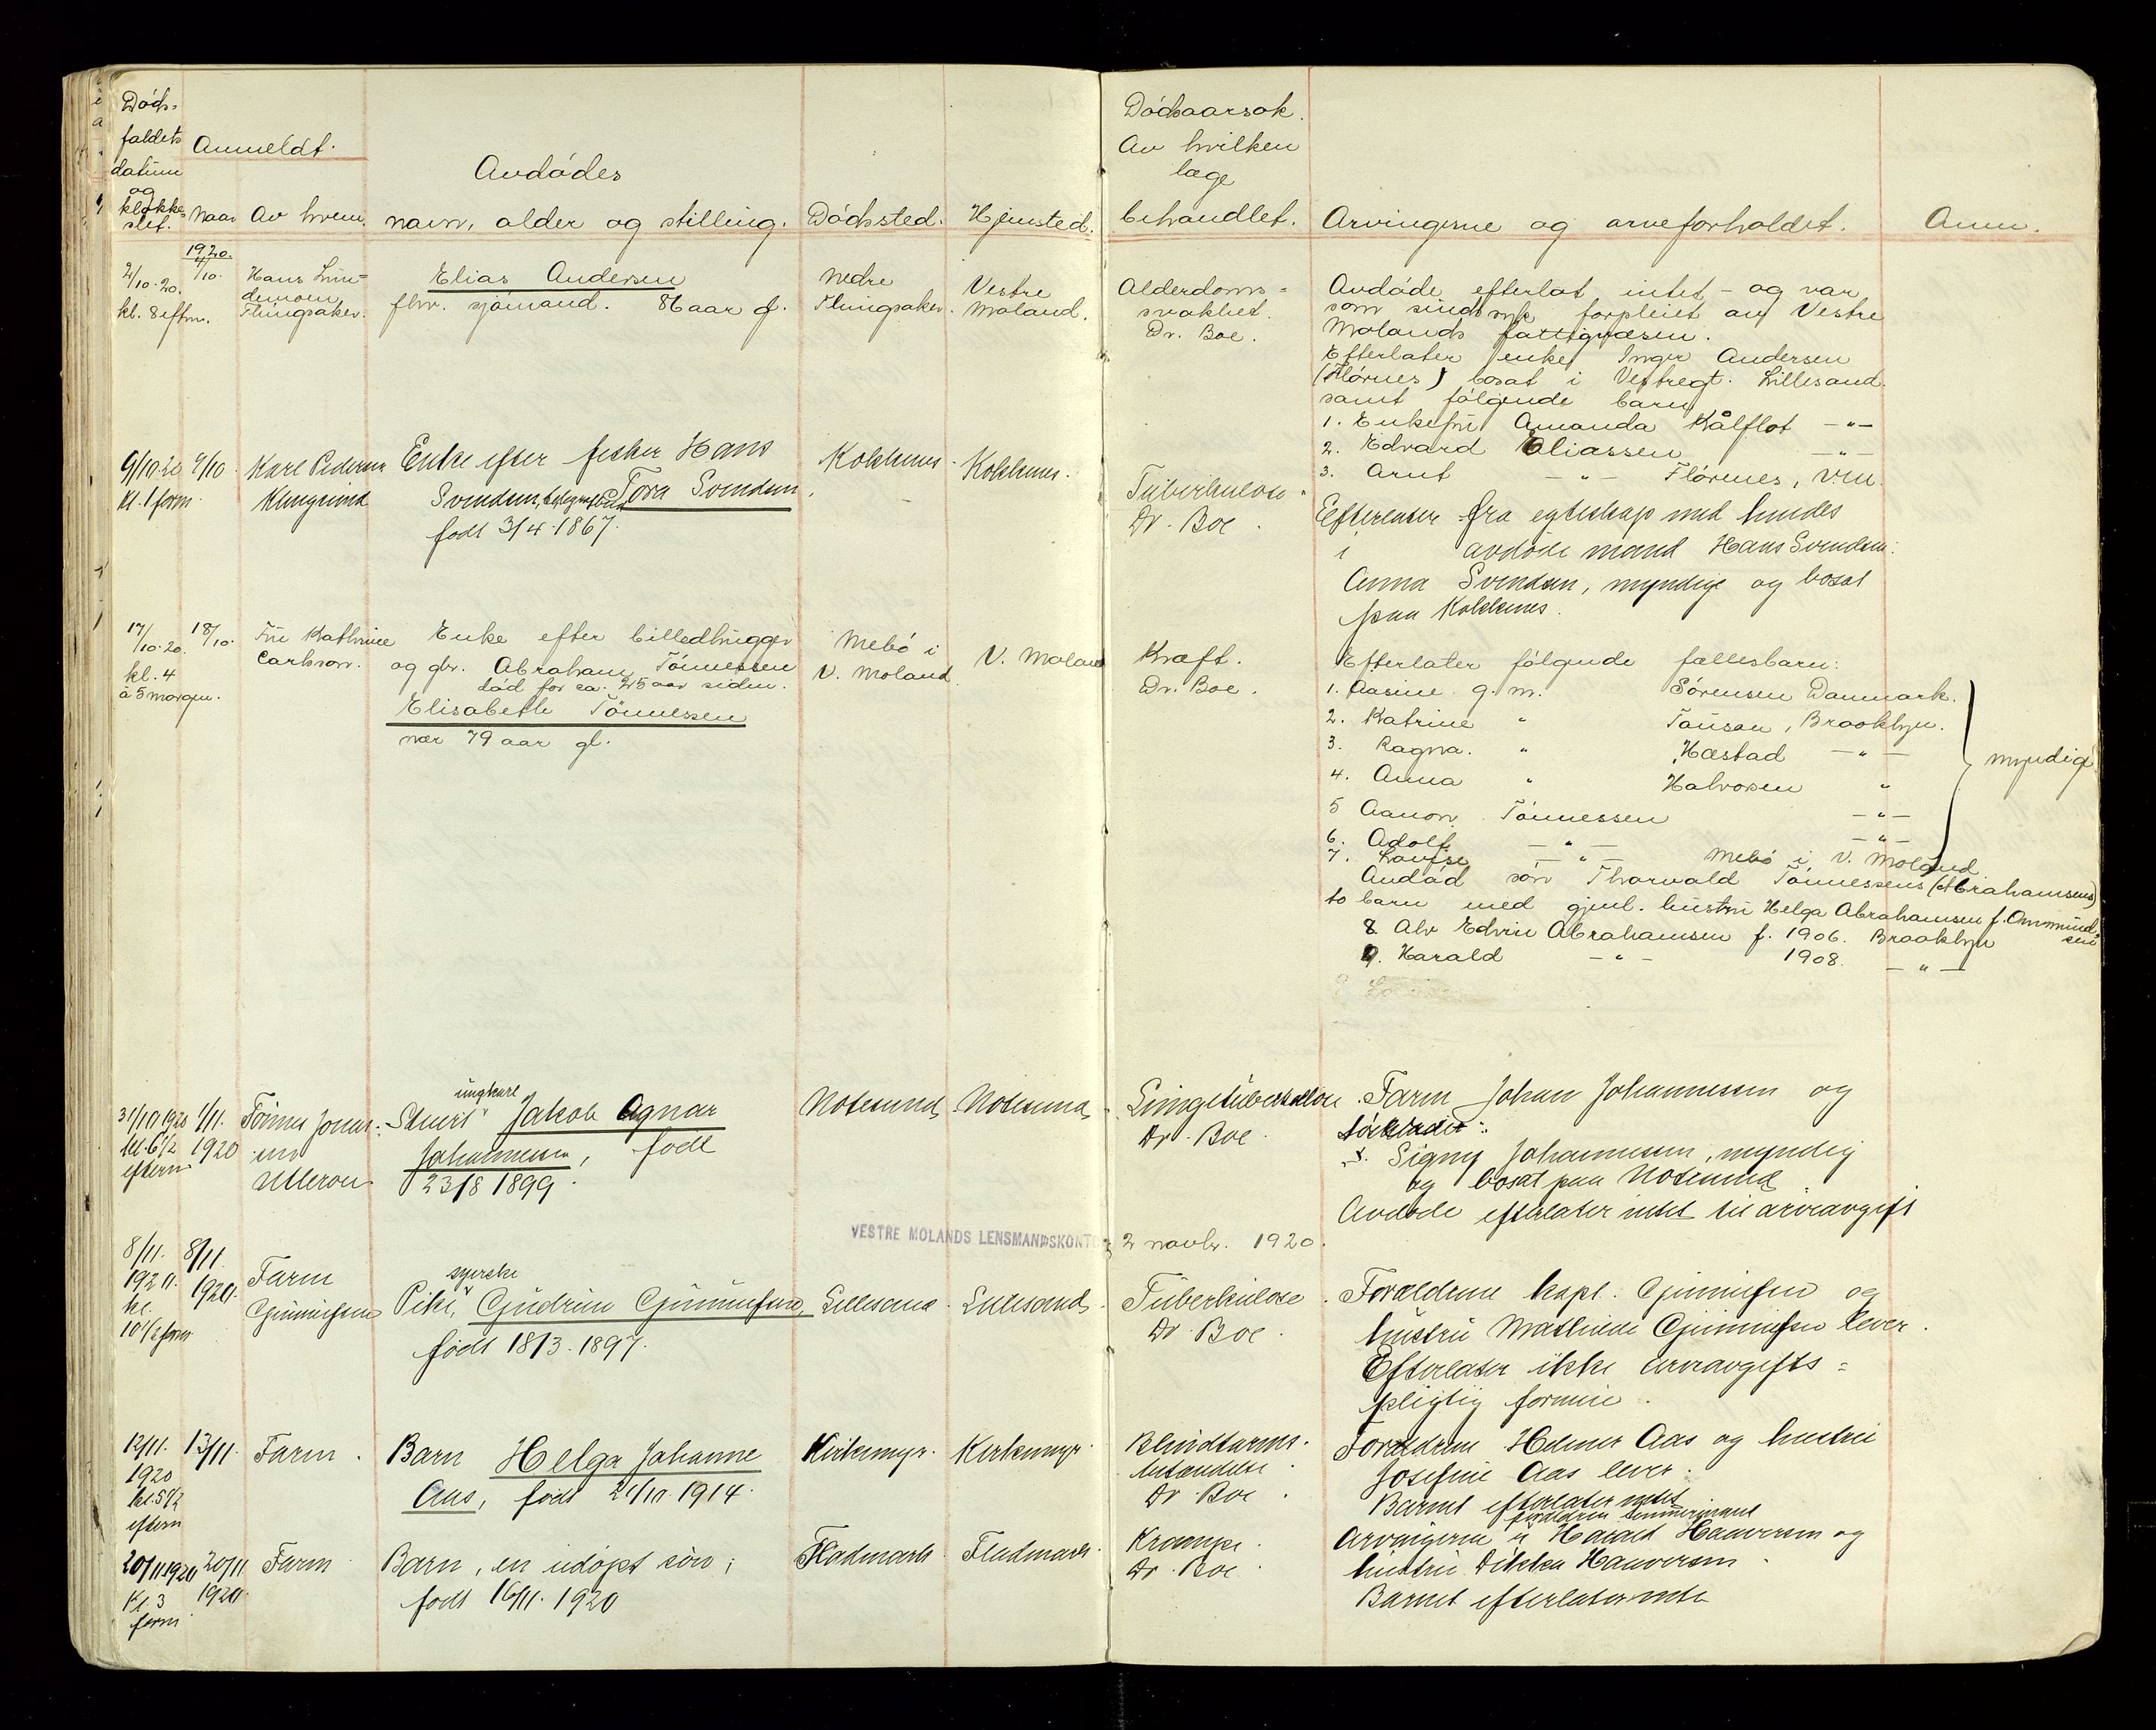 Døds-
faldets
datum
og
klokke-
slet.
Anmeldt.
Naar
Av hvem.
Avdødes
navn, alder og stilling.
Dødssted.
Hjemsted.
Dødsaarsak.
Av hvilken
læge
behandlet.
Arvingerne og arveforholdet.
Anm.
1920.
2/10.20.
kl. 8 eftm.
4/10.
Hans Lun-
demoen
Tingsaker.
Elias Andersen
fhv. sjømand. 86 aar gl.
Nedre
Tingsaker.
Vestre
Moland.
Alderdoms-
svakhet.
Dr. Boe.
Avdøde efterlot intet - og var
som sindssyk forpleiet av Vestre
Molands fattigvæsen.
Efterlater enke Inger Andersen
(Flørnes) bosat i Vestregt. Lillesand.
samt følgende barn
1. Enkefru Amanda Kålflot - " -
2. Edvard Eliassen - " -
3. Arnt - " - Flørenes, V.M.
9/10.20
kl. 1 form.
9/10.
Karl Pedersen
Enke efter fisker Hans
Svendsen, Tora Svendsen,
født 3/4.1867.
Kokkenes.
Kokkenes.
Tuberkulose.
Dr. Boe.
Efterlater fra egteskap med hendes
i avdøde mand Hans Svendsen:
Anna Svendsen, myndige og bosat
paa Kokkenes.
17/10.20.
kl. 4
à 5 morgen.
18/10.
Fru Kathrine
Carlson.
Enke efter billedhugger
og gbr. Abraham Tønnessen
død for ca. 25 aar siden.
Elisabeth Tønnessen
nær 79 aar gl.
Mebø i
V. Moland.
V. Moland
Kræft.
Dr. Boe.
Efterlater følgende fællesbarn:
1. Aasine g.m. Sørensen Danmark.
2. Katrine " Tausen, Brooklyn.
3. Ragna. " Hæstad - " -
4. Anna " Halvorsen "
5 Aanon Tønnessen - " -
6. Adolf - " - - " -
7. Lovise - " - Mebø i V. Moland
myndige
Avdød søn Thorvald Tønnessens (Abrahamsens)
to barn med gjenl. hustru Helga Abrahamsen f. Ommund-
sen
8. Alv Edvin Abrahamsen f. 1906. Brooklyn
9. Harald - " - 1908. - " -
31/10 1920
kl. 6 1/2
efterm
1/11.
1920
Tønnes Jonas-
sen
Ulleröen
ungkarl
Jakob Agnar
Johannessen, født
23/8 1899.
Notesund
Notesund.
Lungetuberkulose.
Dr. Boe.
Farm Johan Johannessen og
1. Signy Johannessen, myndig
og bosat paa Notesund
Avdøde efterlater intet til arveavgift
VESTRE MOLANDS LENSMANDSKONTOR
2 novbr. 1920.
8/11.
1920.
kl.
10 1/2 form
8/11.
1920.
Farm
Gunnufsen
syerske
Pike, Gudrun Gunnufsen,
født 18/3.1897.
Lillesand.
Lillesand.
Tuberkulose.
Dr. Boe.
Forældrene kapt. Gunnufsen og
hustru Mathilde Gunnufsen lever.
Efterlater ikke arveavgifts-
pligtig formue.
12/11.
1920
kl. 5 1/2
efterm
13/11.
Farm.
Barn Helga Johanne
Aas, født 21/10.1914.
Kirkemyr.
Kirkemyr.
Blindtarms-
betændelse.
Dr. Boe.
Forældrene Helmer Aas og hustru
Josefine Aas lever.
Barnet efterlater intet
20/11.1920
Kl. 3
form
20/11
1920.
Farm
Barn, en udøpt søn,
født 16/11.1920
Fladmark.
Fladmark.
Krampe.
Dr. Boe.
forældrene tømmermand
Arvingerne er Harald Haaversen og
hustru Haaversen.
Barnet efterlater intet